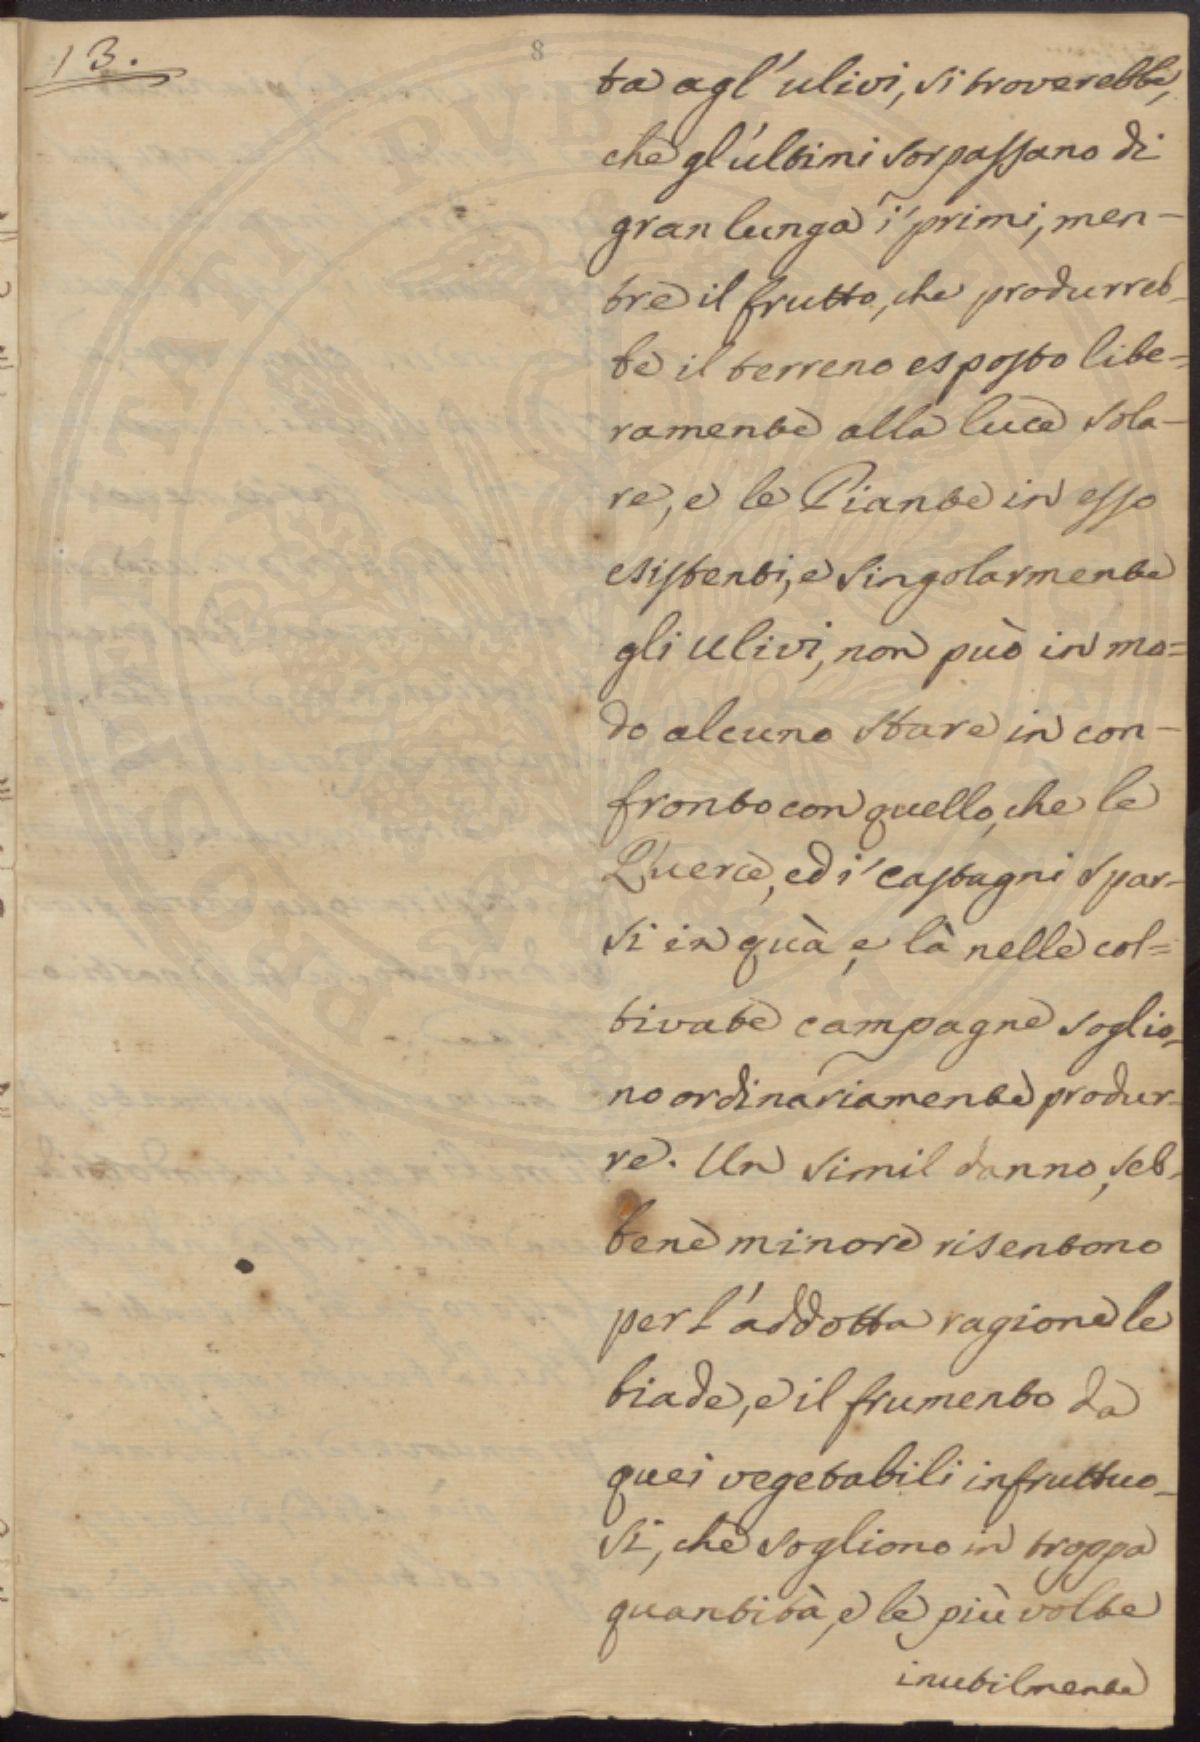 13.
8
ta agl' ulivi, si troverebbe,
che gl'ultimi sorpassano di
gran lunga i' primi, men-
tre il frutto, che produrreb-
be il terreno esposto libe=
ramente alla luce sola-
re, e le Piante in esso
esistenti, e singolarmente
gli ulivi, non può in mo=
do alcuno stare in con-
fronto con quello, che le
Querce, ed i' castagni spar-
si in quà, e là nelle col=
tivate campagne soglio-
no ordinariamente produr-
re. Un simil danno, seb-
bene minore risentono
per l'addotta ragione le
biade, e il frumento da
quei vegetabili infruttuo-
si, che sogliono in troppa
quantità, e le più volte
inutilmente